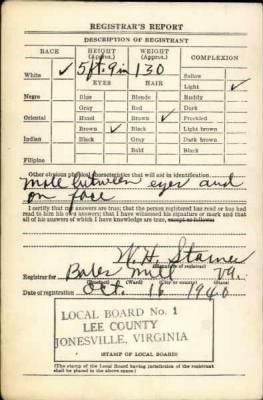 REGISTRAR'S REPORT
DESCRIPTION OF REGISTRANT
RACE HEIGHT (Approx.) WEIGHT (Approx.) COMPLEXION
White ✓ 5 ft. 9 in 130 Sallow
EYES HAIR Light ✓
Negro Blue Blonde Ruddy
Gray Red Dark
Oriental Hazel Brown ✓ Freckled
Brown ✓ Black Light brown
Indian Black Gray Dark brown
Bald Black
Filipino
Other obvious physical characteristics that will aid in identification
Mole between eyes and
on face
I certify that my answers are true; that the person registered has read or has had read to him his own answers; that I have witnessed his signature or mark and that all of his answers of which I have knowledge are true, except as follows:
W. H. Starnes
(Signature of registrar)
Registrar for Bales Mill Va.
(Precinct) (Ward) (City or county) (State)
Date of registration Oct. 16 1940
LOCAL BOARD No. 1
LEE COUNTY
JONESVILLE, VIRGINIA
(STAMP OF LOCAL BOARD)
(The stamp of the Local Board having jurisdiction of the registrant shall be placed in the above space.)